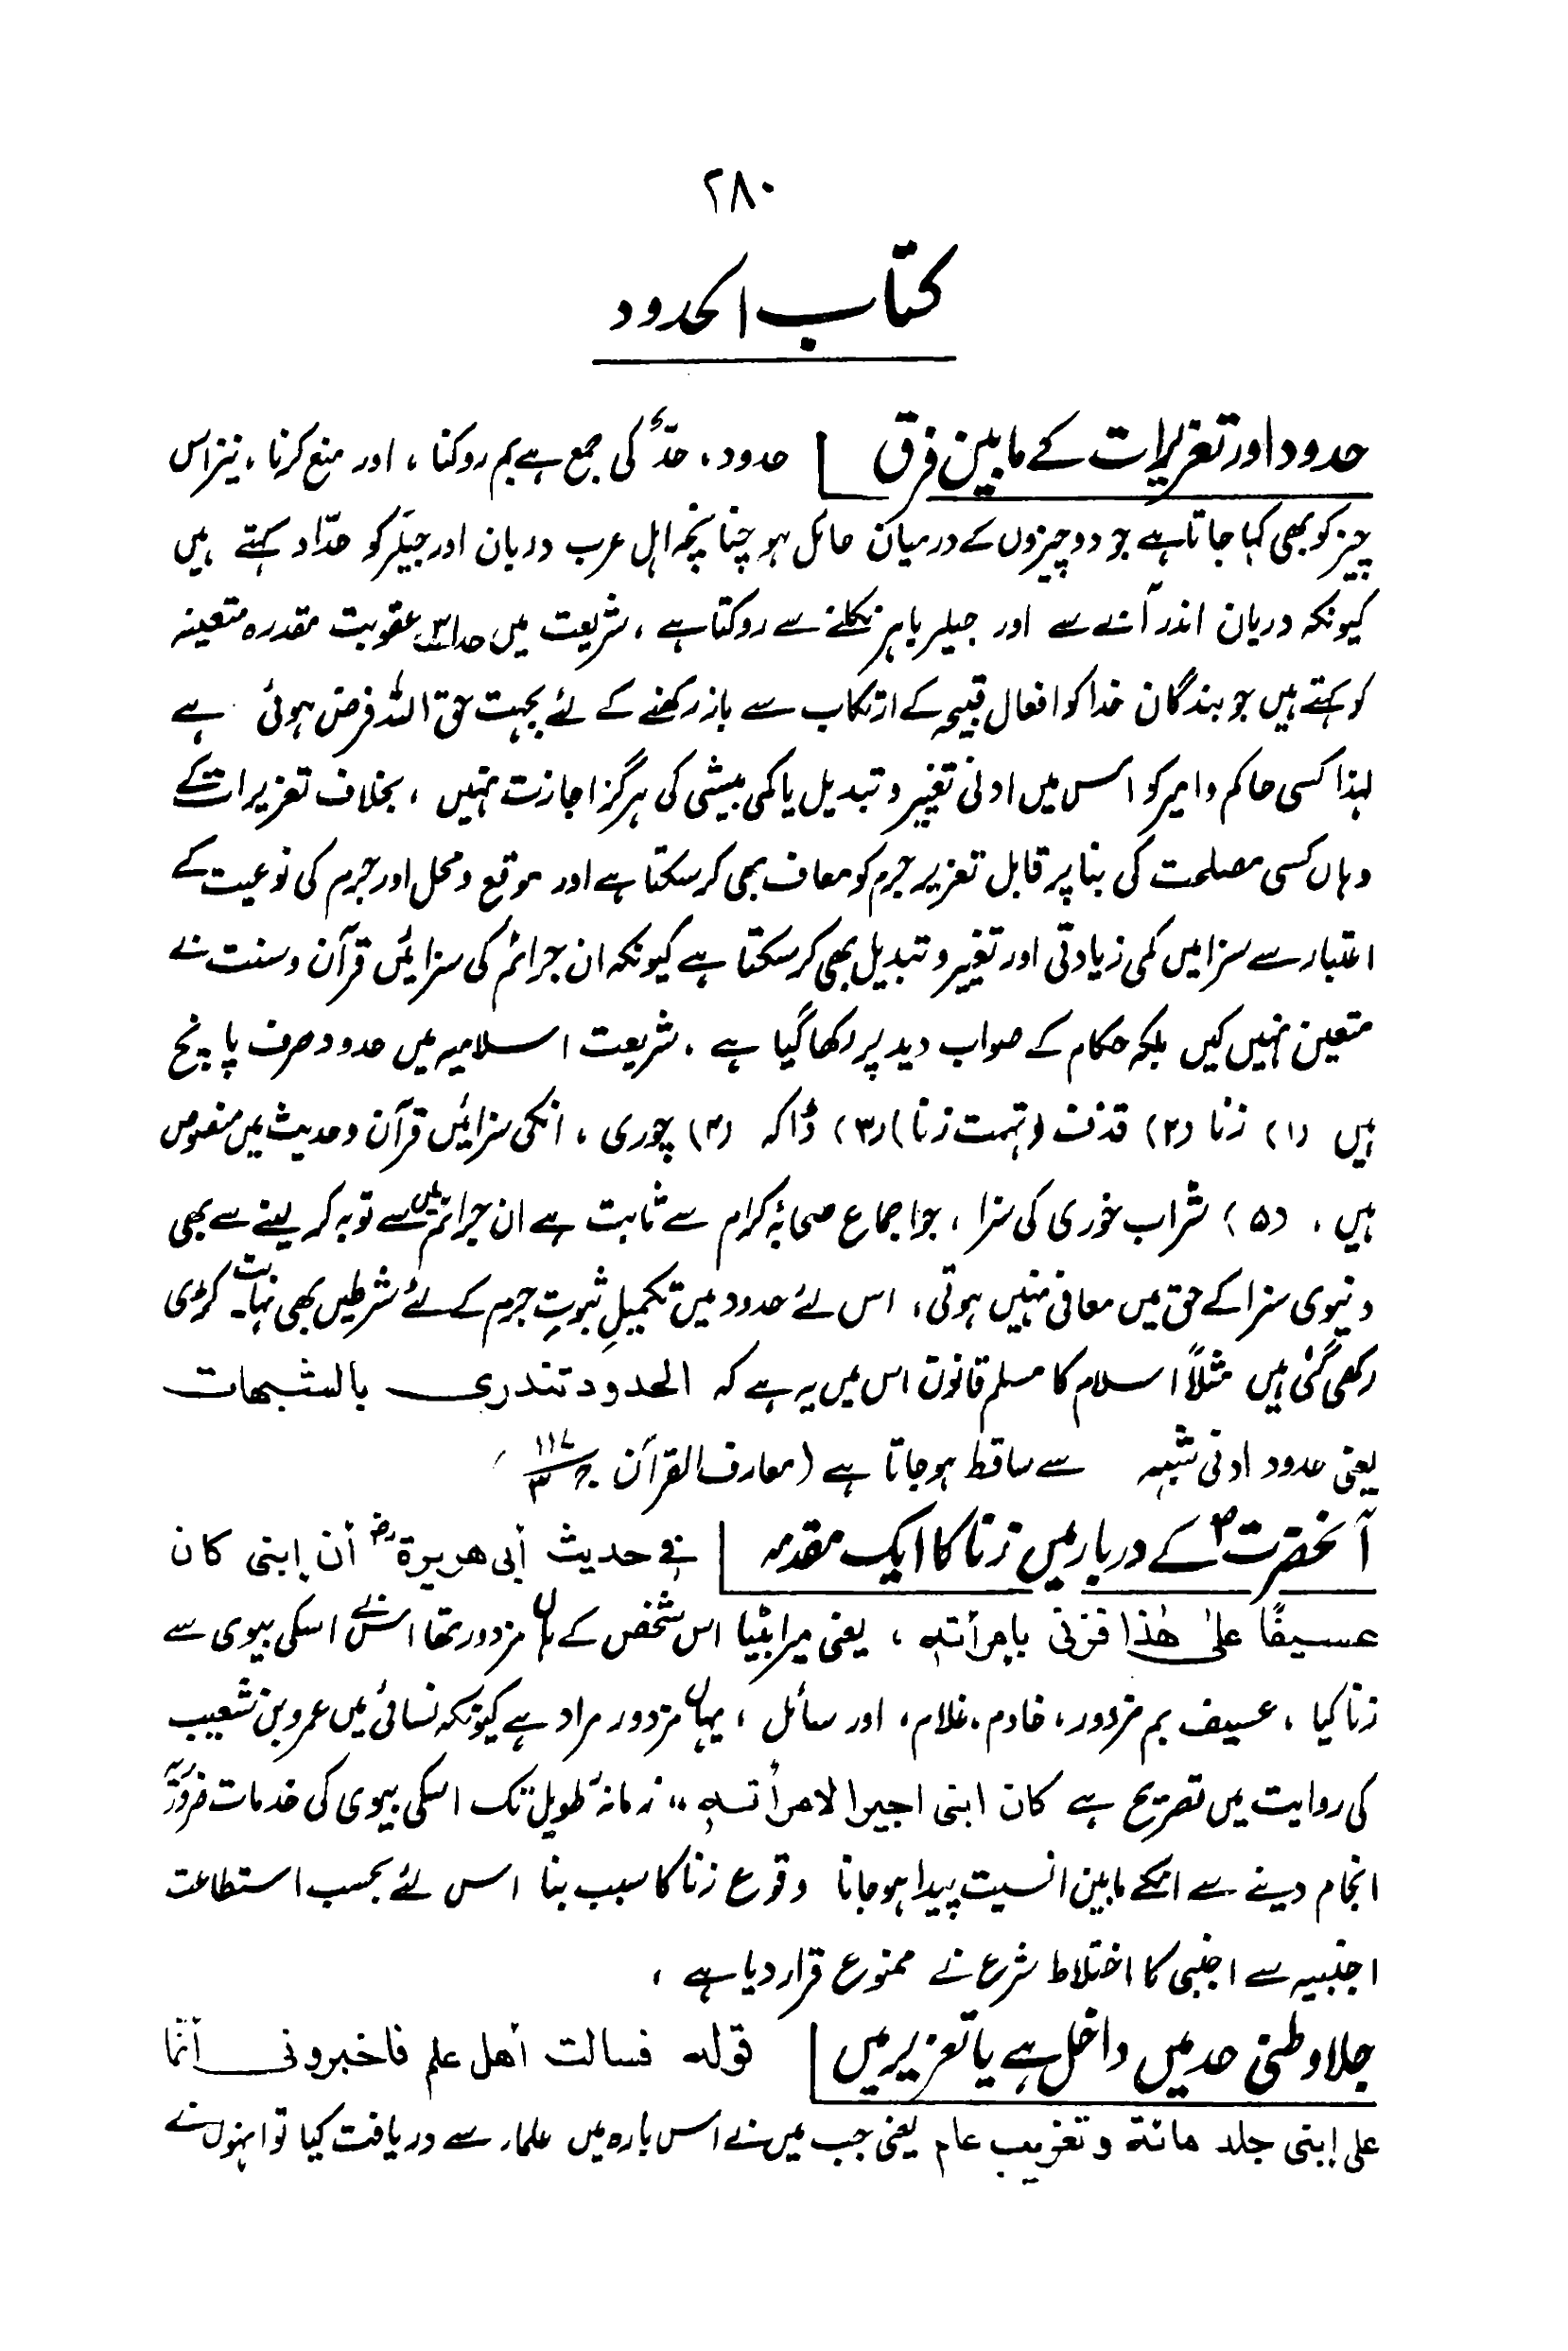 ۲۸۰
کتاب الحدود
حدود اور تعزیرات کے مابین فرق حدود، حدٌّ کی جمع ہے بم روکنا، اور منع کرنا، نیز اس
چیز کو بھی کہا جاتا ہے جو دو چیزوں کے درمیان حائل ہو چنانچہ اہل عرب دربان اور جیلر کو حدّاد کہتے ہیں
کیونکہ دربان اندر آنے سے اور جیلر باہر نکلنے سے روکتا ہے، شریعت میں حد اس عقوبت مقدرہ متعینہ
کو کہتے ہیں جو بندگان خدا کو افعال قبیحہ کے ارتکاب سے باز رکھنے کے لئے بجہت حق اللہ فرض ہوئی ہے
لہذا کسی حاکم و امیر کو اس میں ادنی تغییر و تبدیل یا کمی بیشی کی ہرگز اجازت نہیں، بخلاف تعزیرات کے
وہاں کسی مصلحت کی بنا پر قابل تعزیر جرم کو معاف بھی کر سکتا ہے اور موقع و محل اور جرم کی نوعیت کے
اعتبار سے سزا میں کمی زیادتی اور تغییر و تبدیل بھی کر سکتا ہے کیونکہ ان جرائم کی سزائیں قرآن و سنت نے
متعین نہیں کیں بلکہ حکام کے صواب دید پر رکھا گیا ہے، شریعت اسلامیہ میں حدود صرف پانچ
ہیں (۱) زنا (۲) قذف (تہمت زنا) (۳) ڈاکہ (۴) چوری، انکی سزائیں قرآن و حدیث میں منصوص
ہیں، (۵) شراب خوری کی سزا، جو اجماع صحابۂ کرام سے ثابت ہے ان جرائم میں سے توبہ کر لینے سے بھی
دنیوی سزا کے حق میں معافی نہیں ہوتی، اس لئے حدود میں تکمیلِ ثبوتِ جرم کے لئے شرطیں بھی نہایت کڑی
رکھی گئی ہیں مثلاً اسلام کا مسلم قانون اس میں یہ ہے کہ الحدود تندری بالشبہات
یعنی حدود ادنی شبہہ سے ساقط ہو جاتا ہے (معارف القرآن ج۳
آنحضرتؐ کے دربار میں زنا کا ایک مقدمہ فی حدیث أبی ھریرةؓ أن إبنی کان
عسیفًا علیٰ ھٰذا فزنی بإمرأته، یعنی میرا بیٹا اس شخص کے ہاں مزدور تھا اس نے اسکی بیوی سے
زنا کیا، عسیف بم مزدور، خادم، غلام، اور سائل، یہاں مزدور مراد ہے کیونکہ نسائی میں عمرو بن شعیب
کی روایت میں تصریح ہے کان ابنی اجیرا لامرأته ،، زمانۂ طویل تک اسکی بیوی کی خدمات ضروریہ
انجام دینے سے انکے مابین انسیت پیدا ہو جانا وقوع زنا کا سبب بنا اس لئے بحسب استطاعت
اجنبیہ سے اجنبی کا اختلاط شرع نے ممنوع قرار دیا ہے،
جلاوطنی حد میں داخل ہے یا تعزیر میں قولہ فسالت أھل علم فاخبرونی أنّما
علی إبنی جلد مائة وتغریب عام یعنی جب میں نے اس بارہ میں علماء سے دریافت کیا تو انہوں نے